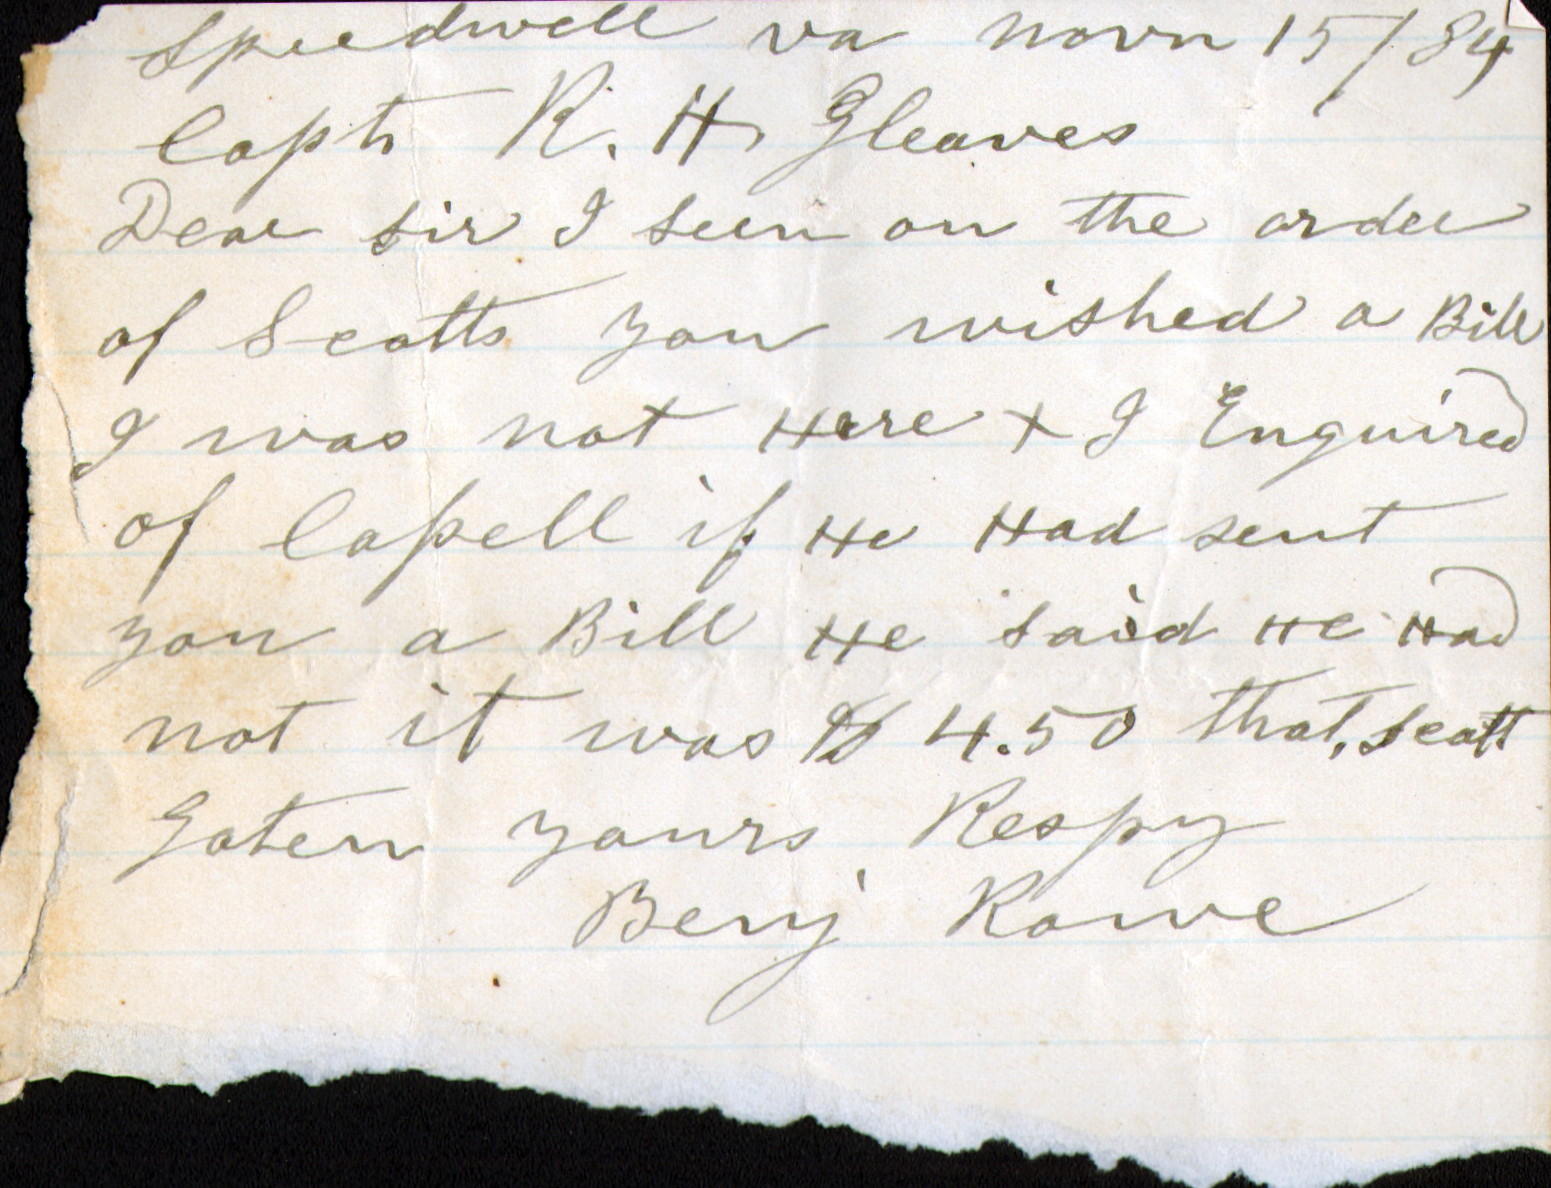 Speedwell va Novn 15/84
Capt R. H. Gleaves
Dear sir I seen on the order
of Scotts you wished a Bill
I was not Here + I Enquired
of Capell if He Had sent
you a Bill He said He Had
not it was $ 4.50 that, scott
Goten yours Respy
Benj Rowe